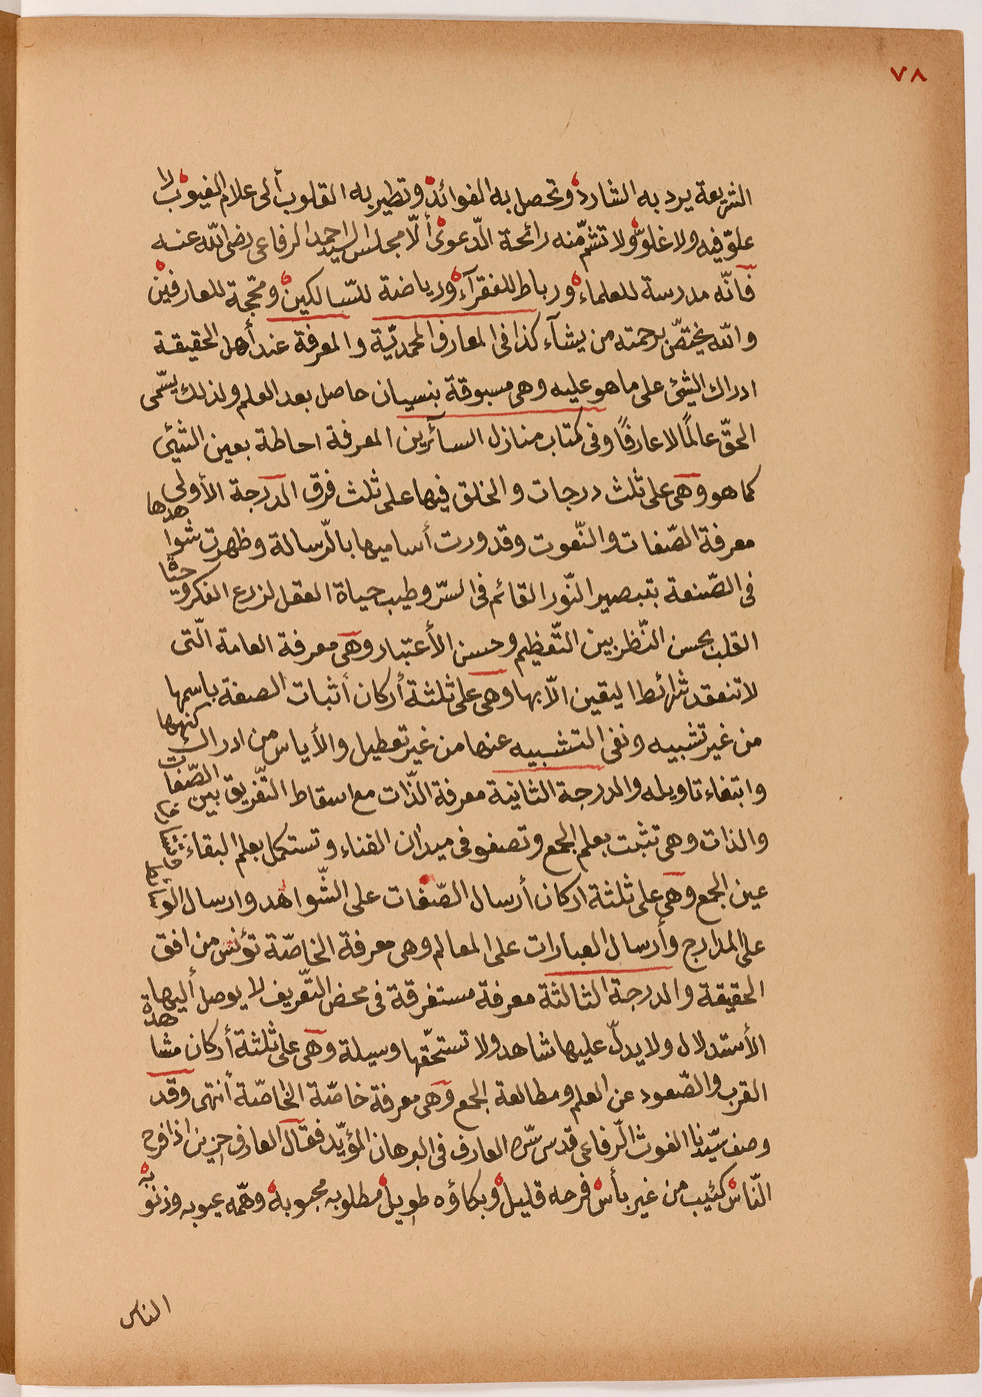 ٧٨
الشريعة يرد به الشارد وتحصل به الفوائد وتطير به القلوب ألى علام الغيوب لا
علوّ فيه ولا غلوّ ولا تشمّ منه رائحة الدّعوى ألّا مجلس السيد احمد الرفاعى رضى الله عنه
فانّه مدرسة للعلماء ورباط للفقرآء ورياضة للسّالكين ومحجّة للعارفين
والله يختصّ برحمته من يشآء كذا فى المعارف المحمديّة والمعرفة عند أهل الحقيقة
ادراك الشئ على ما هو عليه وهى مسبوقة بنسيان حاصل بعد العلم ولذلك يسمّى
الحقّ عالمًا لا عارفًا وفى كتاب منازل السآئرين المعرفة احاطة بعين الشئ
كما هو وهى على ثلث درجات والخلق فيها على ثلث فرق الدرجة الأولى
معرفة الصّفات والنّعوت وقد ورت أساميها بالرّسالة وظهرت شواهدها
فى الصّنعة بتبصير النّور القائم فى السرّ وطيب حياة العقل لزرع الفكر وحياة
القلب بحسن النّظر بين التّعظيم وحسن الأعتبار وهى معرفة العامة الّتى
لا تنعقد شرائط اليقين الّا بها وهى على ثلثة أركان أثبات الصفة باسمها
من غير تشبيه ونفى التشبيه عنها من غير تعطيل والأياس من ادراك كنهها
وابتغاء تاويله والدرجة الثانية معرفة الذّات مع اسقاط التّفريق بين الصّفات
والذات وهى تثبت بعلم الجمع وتصفو فى ميدان الفناء وتستكمل بعلم البقاء وتشارف
عين الجمع وهى على ثلثة اركان أرسال الصّفات على الشّواهد وارسال الوسائط
على المدارج وأرسال العبارات على المعالم وهى معرفة الخاصّة تؤنس من افق
الحقيقة والدرجة الثالثة معرفة مستغرقة فى محض التّعريف لا يوصل أليها
الأستدلال ولا يدلّ عليها شاهد ولا تستحقّها وسيلة وهى على ثلثة أركان مشاهدة
القرب والصّعود عن العلم ومطالعة الجمع وهى معرفة خاصّة الخاصّة أنتهى وقد
وصف سيّدنا الغوث الرّفاعى قدس سّره العارف فى البرهان المؤيّد فقال العارف حزين اذا فرح
النّاس كئيب من غير بأس فرحه قليل وبكاؤه طويل مطلوبه محبوبه وهمّه عيوبه وذنوبه
الناس